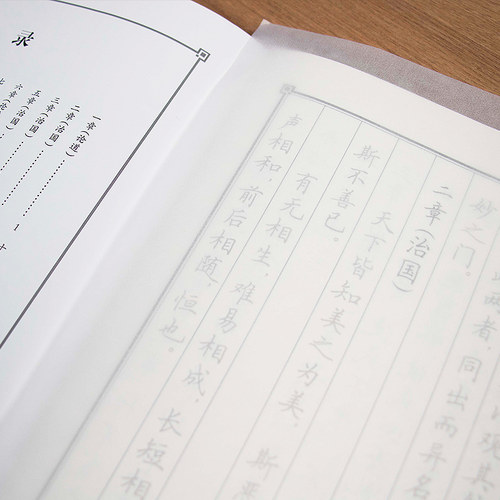 录
一章(论道)……1
二章(治国)……
三章(治国)……
五章(治国)……
六章(论
七
观其
者,同出而异名
妙之门。
二章(治国)
天下皆知美之为美,斯恶
斯不善已。
有无相生,难易相成,长短相
声相和,前后相随,恒也。